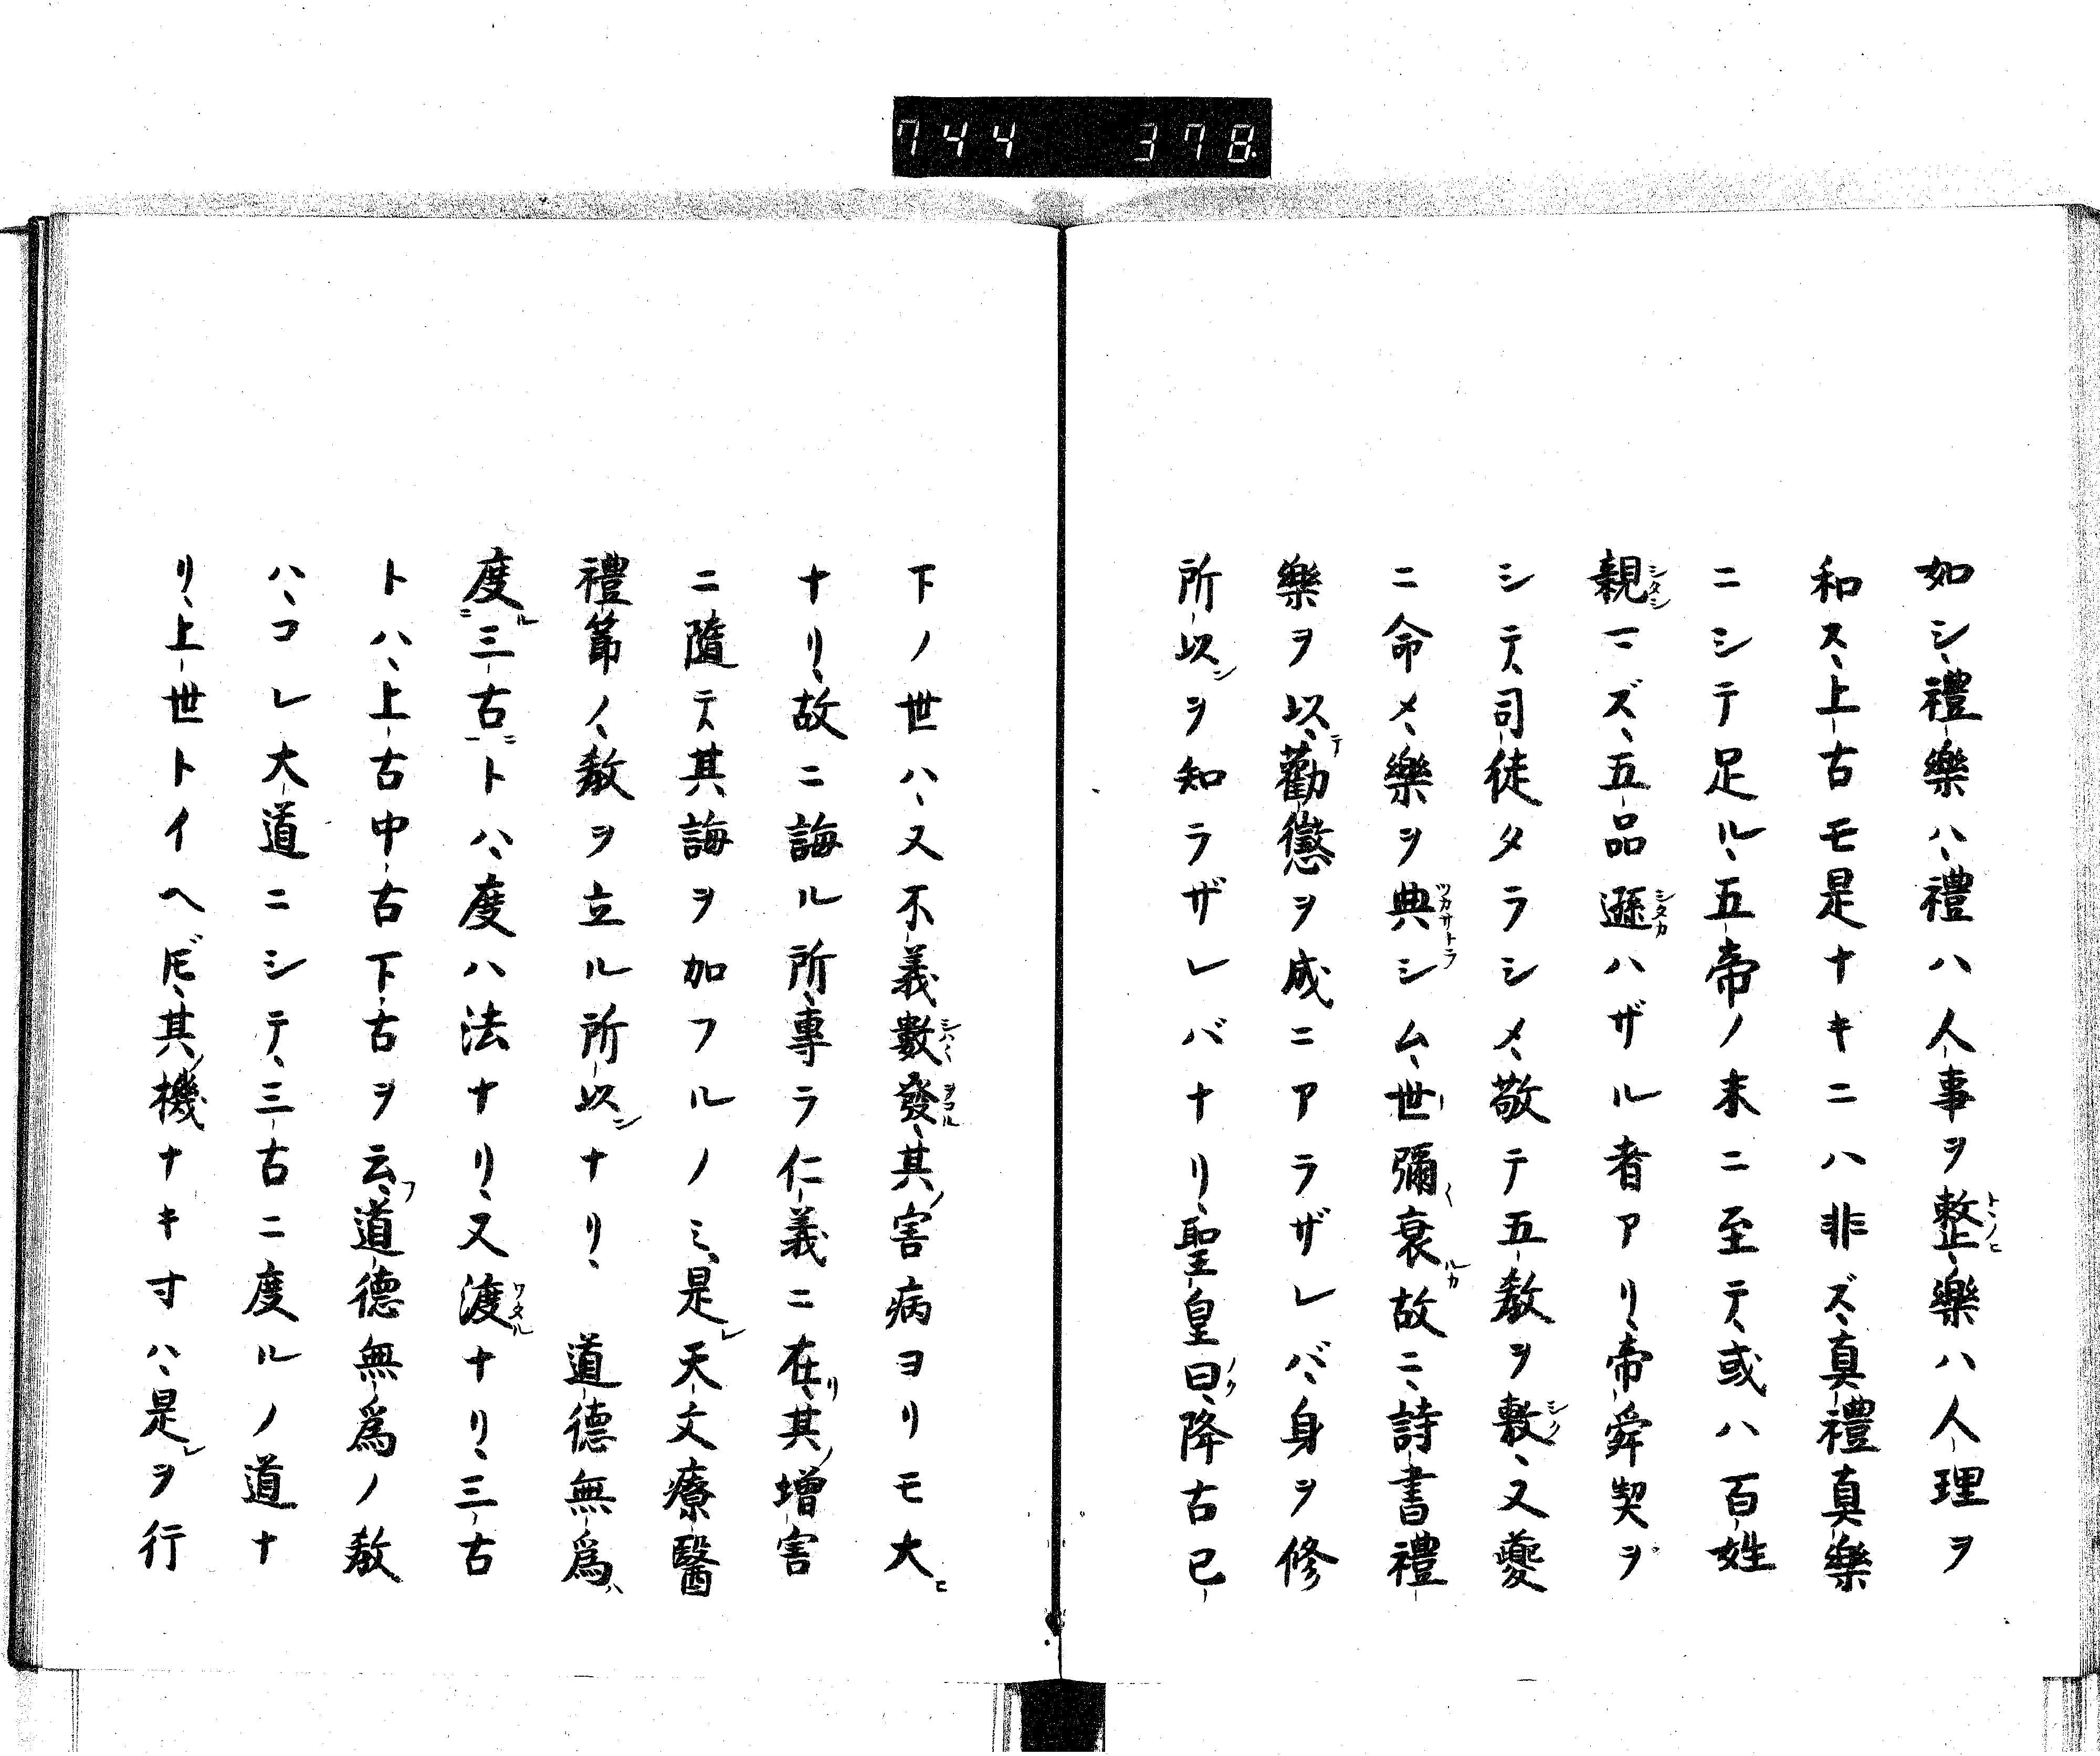 744 378
如シ、禮樂ハ、禮ハ人事ヲ整、樂ハ人理ヲ
和ス、上古モ是ナキニハ非ズ、真禮真樂
ニシテ足ル、五帝ノ末ニ至テ、或ハ百姓
親マズ、五品遜ハザル者アリ、帝舜契ヲ
シテ、司徒タラシメ、敬テ五教ヲ敷、又夔
ニ命メ、樂ヲ典シム、世彌衰故ニ、詩書禮
樂ヲ以、勸懲ヲ成ニアラザレバ、身ヲ修
所以ヲ知ラザレバナリ、聖皇曰、降古已
下ノ世ハ、又不義數發、其害病ヨリモ大
ナリ、故ニ誨ル所、專ラ仁義ニ在、其増害
ニ隨テ、其誨ヲ加フルノミ、是天文療醫
禮節ノ、教ヲ立ル所以ナリ、道德無爲
度三古トハ、度ハ法ナリ、又渡ナリ、三古
トハ、上古中古下古ヲ云、道德無爲ノ教
ハ、コレ大道ニシテ、三古ニ度ルノ道ナ
リ、上世トイヘ𪜈、其機ナキ寸ハ、是ヲ行